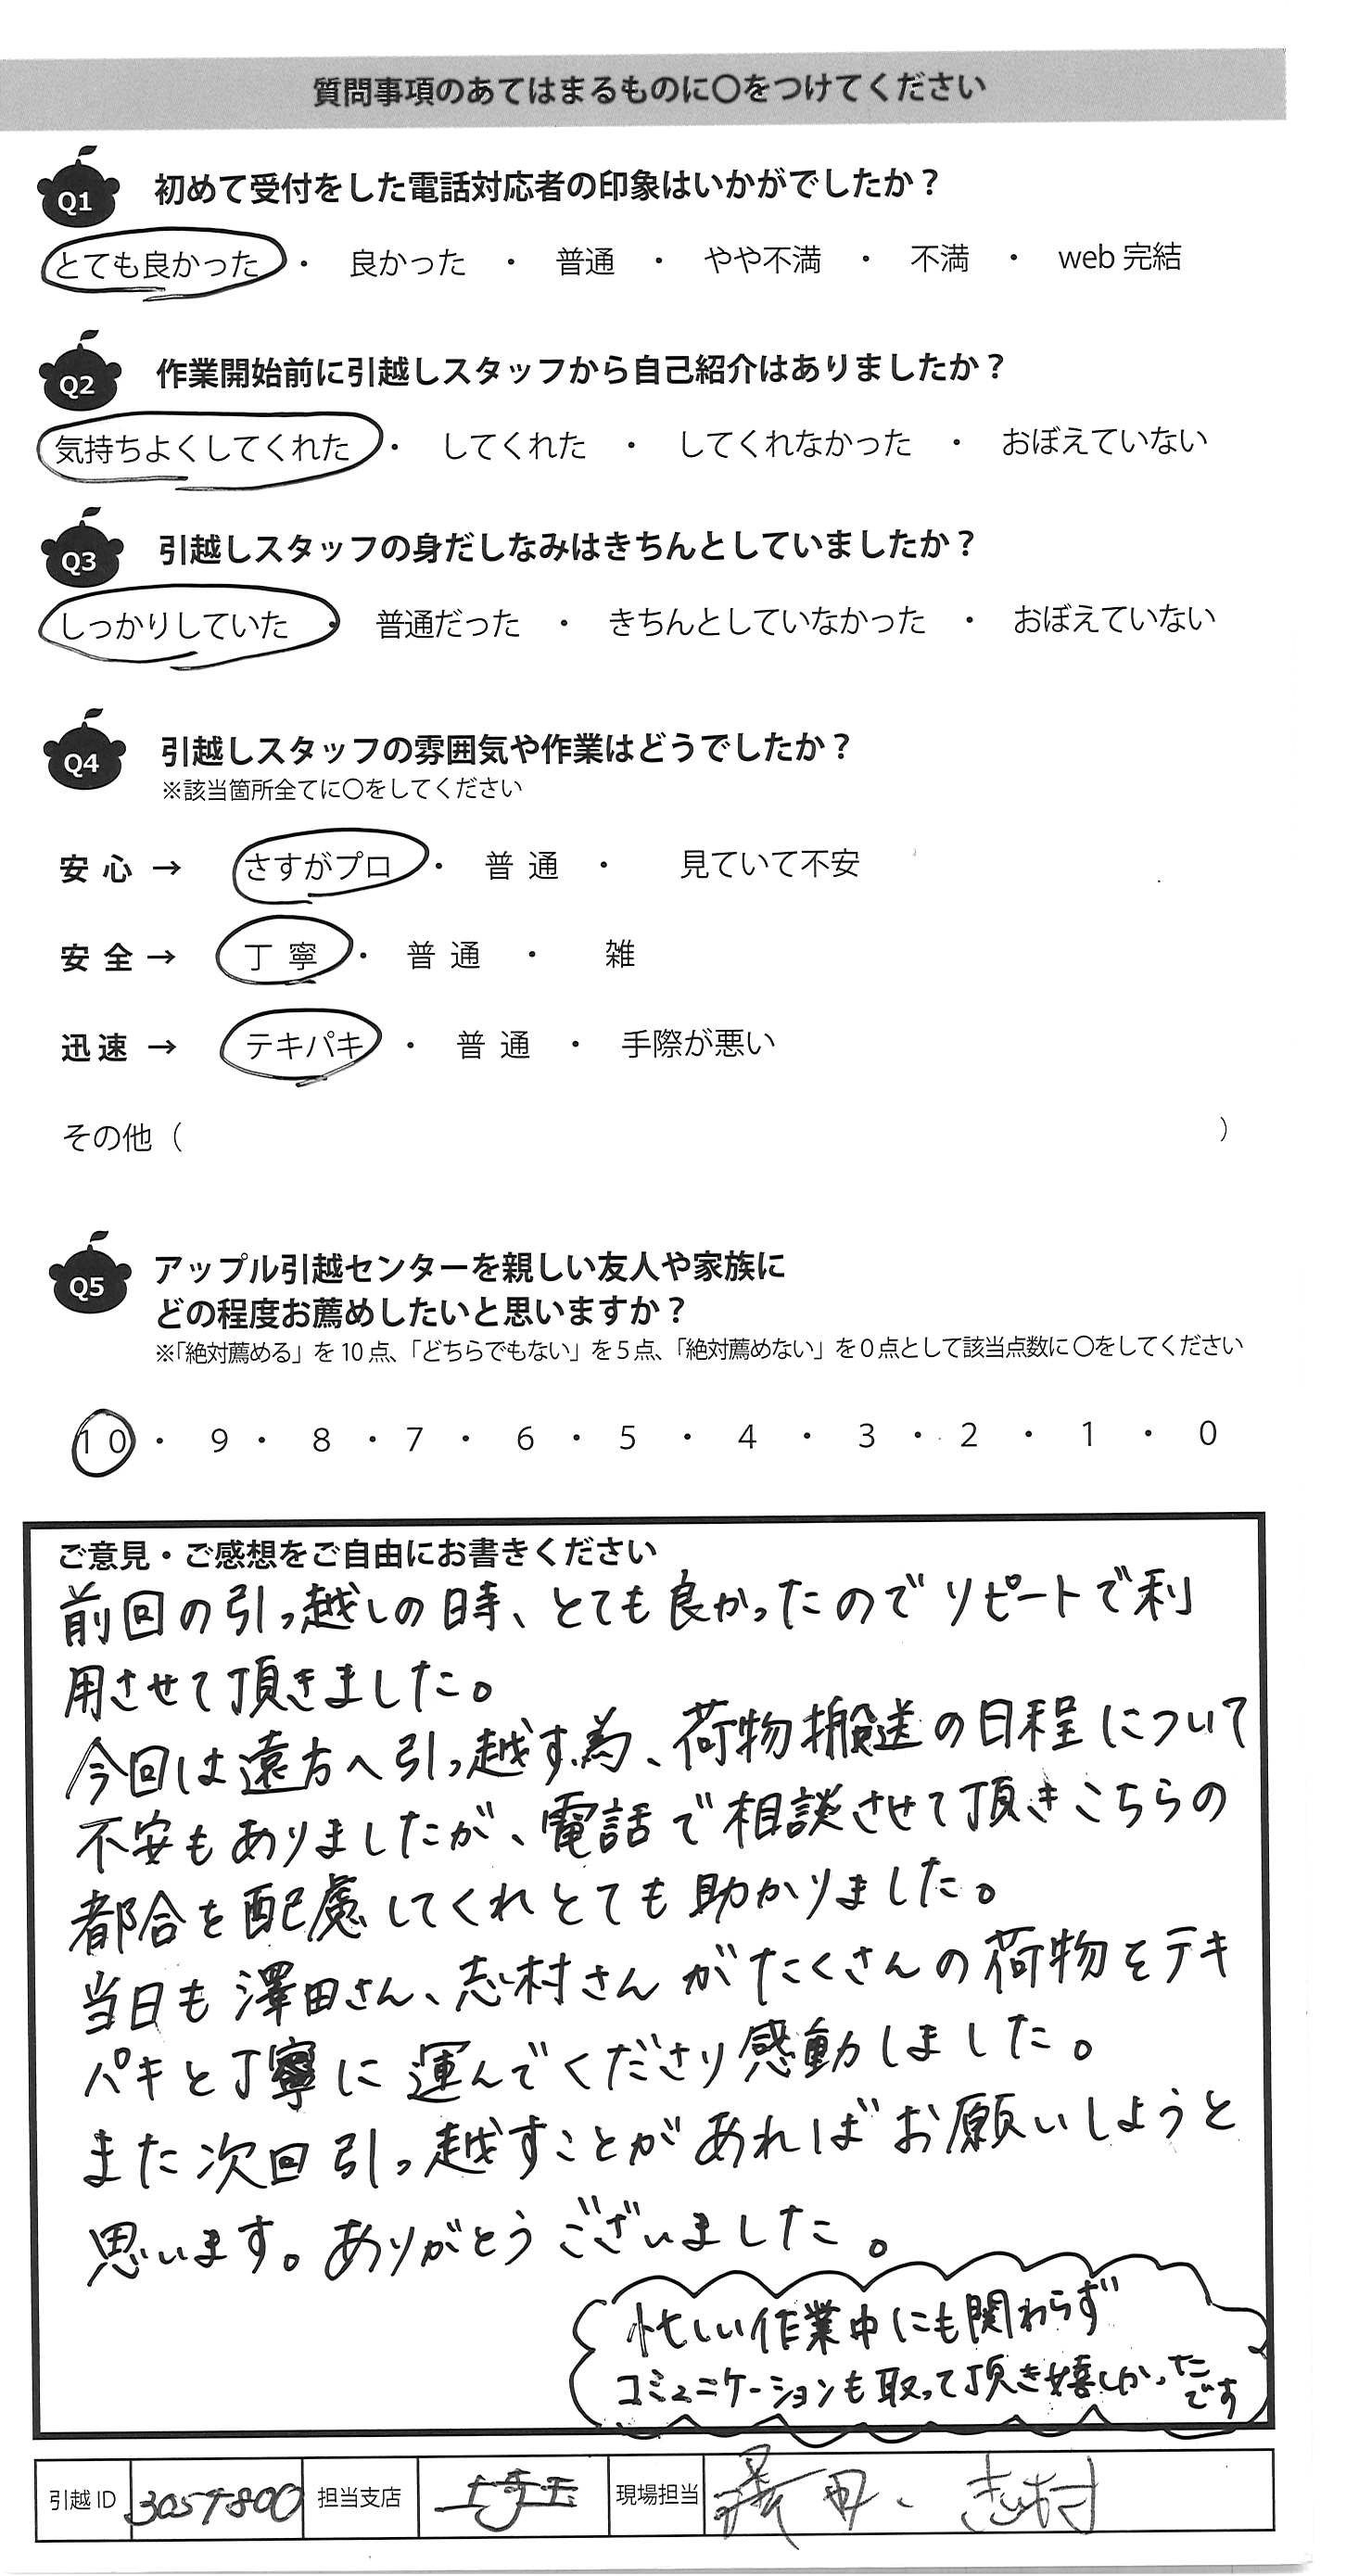 質問事項のあてはまるものに〇をつけてください
Q1 初めて受付をした電話対応者の印象はいかがでしたか？
とても良かった ・ 良かった ・ 普通 ・ やや不満 ・ 不満 ・ web 完結
Q2 作業開始前に引越しスタッフから自己紹介はありましたか？
気持ちよくしてくれた ・ してくれた ・ してくれなかった ・ おぼえていない
Q3 引越しスタッフの身だしなみはきちんとしていましたか？
しっかりしていた ・ 普通だった ・ きちんとしていなかった ・ おぼえていない
Q4 引越しスタッフの雰囲気や作業はどうでしたか？
※該当箇所全てに〇をしてください
安心 → さすがプロ ・ 普通 ・ 見ていて不安
安全 → 丁寧 ・ 普通 ・ 雑
迅速 → テキパキ ・ 普通 ・ 手際が悪い
その他（ ）
Q5 アップル引越センターを親しい友人や家族に
どの程度お薦めしたいと思いますか？
※「絶対薦める」を 10 点、「どちらでもない」を 5 点、「絶対薦めない」を 0 点として該当点数に〇をしてください
10 ・ 9 ・ 8 ・ 7 ・ 6 ・ 5 ・ 4 ・ 3 ・ 2 ・ 1 ・ 0
ご意見・ご感想をご自由にお書きください
前回の引っ越しの時、とても良かったのでリピートで利
用させて頂きました。
今回は遠方へ引っ越す為、荷物搬送の日程について
不安もありましたが、電話で相談させて頂きこちらの
都合を配慮してくれとても助かりました。
当日も澤田さん、志村さんがたくさんの荷物をテキ
パキと丁寧に運んでくださり感動しました。
また次回引っ越すことがあればお願いしようと
思います。ありがとうございました。
忙しい作業中にも関わらず
コミュニケーションも取って頂き嬉しかったです
引越 ID 3057800 担当支店 埼玉 現場担当 澤田、志村